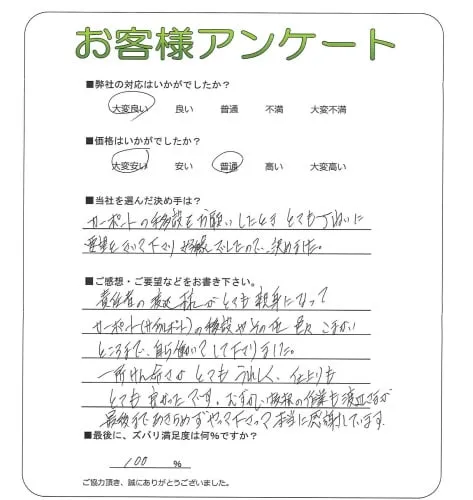 お客様アンケート
■弊社の対応はいかがでしたか？
大変良い 良い 普通 不満 大変不満
■価格はいかがでしたか？
大変安い 安い 普通 高い 大変高い
■当社を選んだ決め手は？
カーポートの移設をお願いしたとき とても丁ねいに
要望をきいて下さり 決めました。
■ご感想・ご要望などをお書き下さい。
責任者の がとても親身になって
カーポート(サイクルポート)の移設やその他 色々こまかい
ところまで、自ら働いてして下さりました。
一所けん命さがとてもうれしく、仕上りも
とても良かったです。 の作業も
最後まであきらめずやって下さって本当に感謝しています。
■最後に、ズバリ満足度は何％ですか？
100 ％
ご協力頂き、誠にありがとうございました。